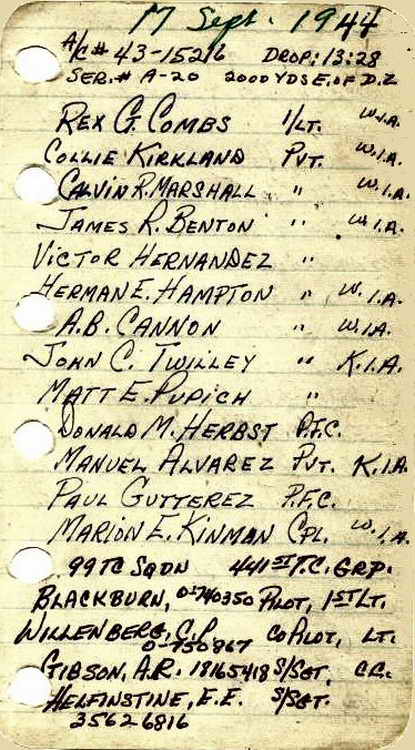 17 Sept. 1944
A/C# 43-15216 DROP: 13:28
SER.# A-20 2000 YDS E. OF D.Z
REX G. COMBS 1/LT. W.I.A.
COLLIE KIRKLAND PVT. W.I.A.
CALVIN R. MARSHALL " W.I.A.
JAMES R. BENTON " W.I.A.
VICTOR HERNANDEZ "
HERMAN E. HAMPTON " W.I.A.
A.B. CANNON " W.I.A.
JOHN C. TWILLEY " K.I.A.
MATT E. PUPICH "
DONALD M. HERBST P.F.C.
MANUEL ALVAREZ PVT. K.I.A.
PAUL GUTTEREZ P.F.C.
MARION E. KINMAN CPL. W.I.A.
99 TC SQDN 441ST T.C. GRP.
BLACKBURN, 0-740350 PILOT, 1ST LT.
WILLENBERG, C.P. CO PILOT, LT.
0-750867
GIBSON, A.R. 18165418 S/SGT, C.C.
HELFINSTINE, E.E. S/SGT.
35626816